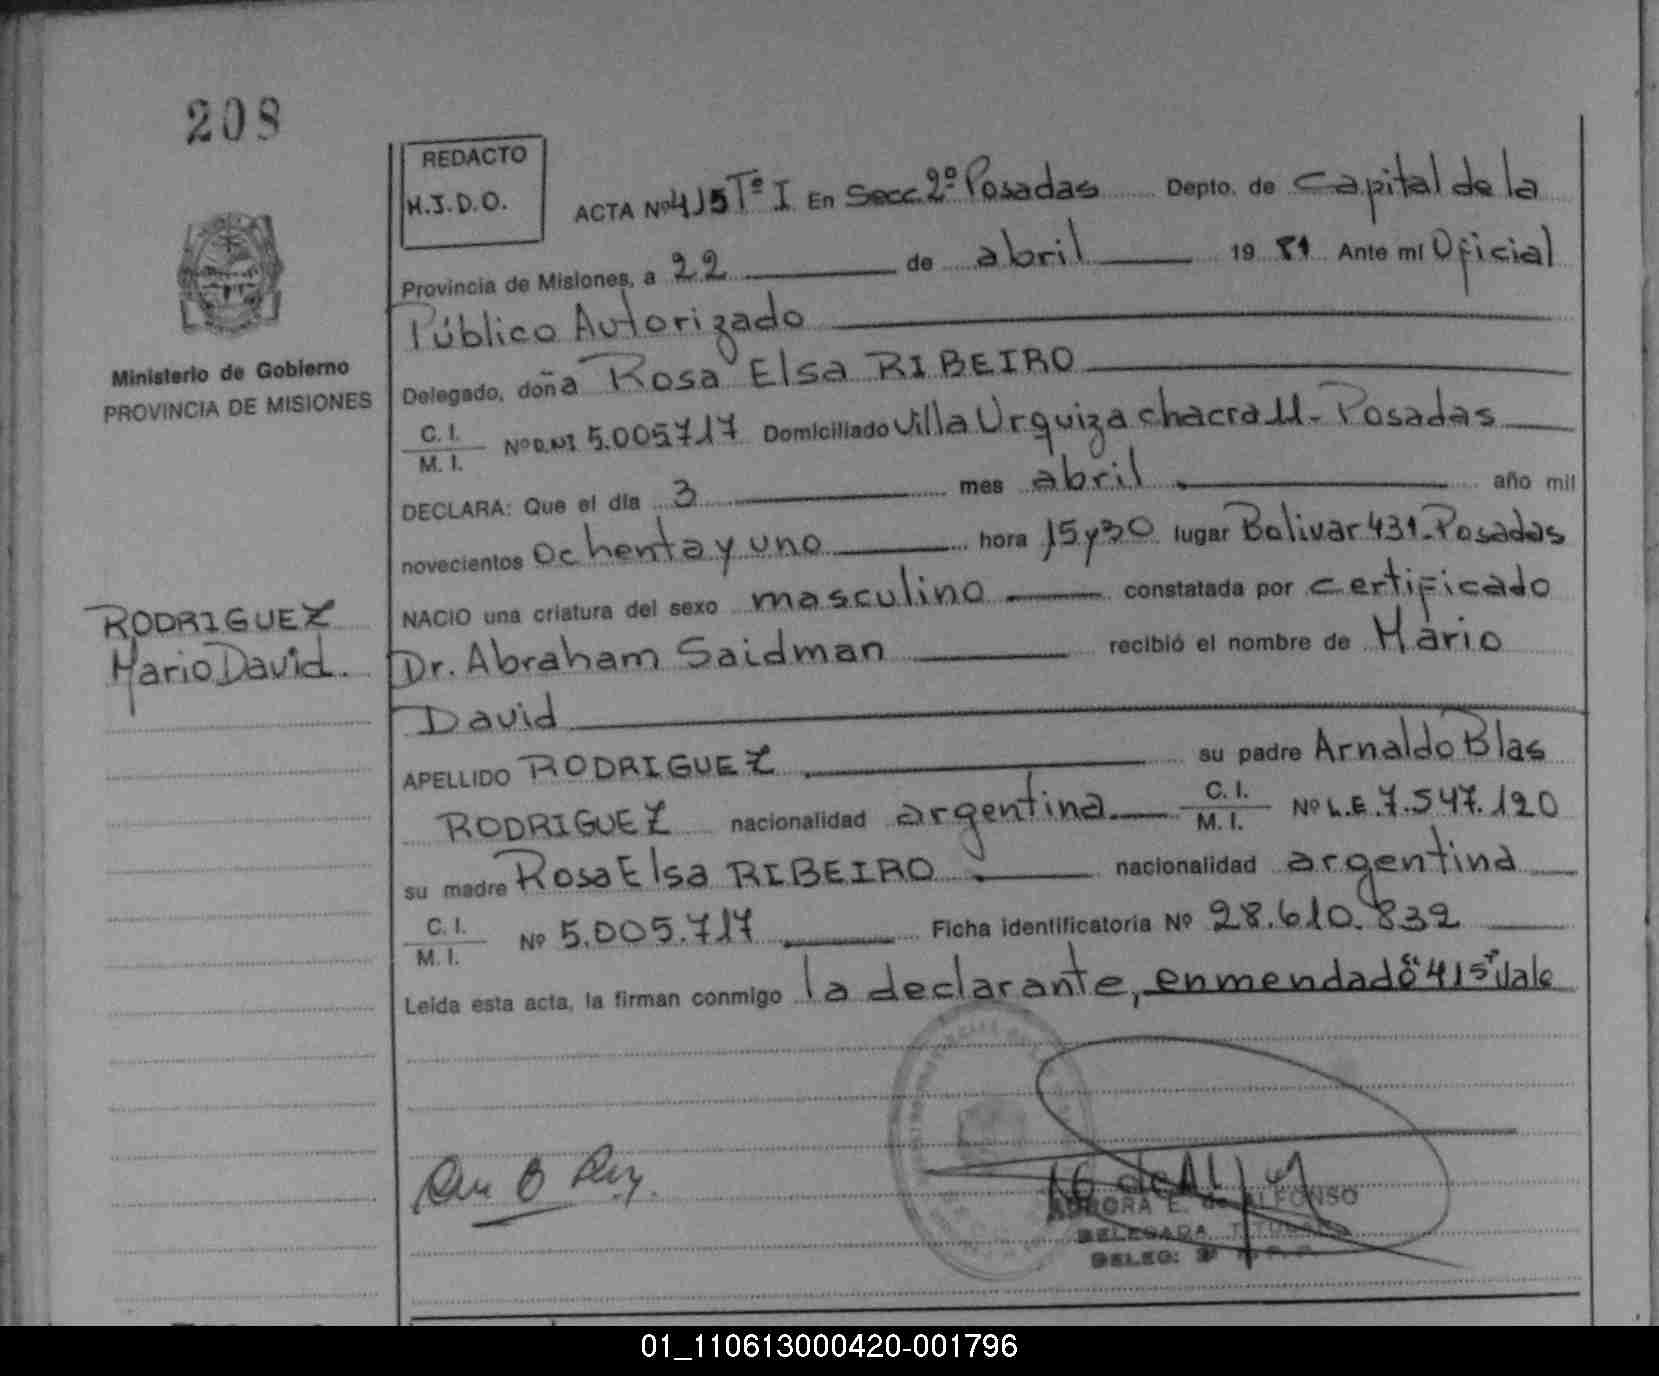 208
REDACTO
M.J.D.O.
ACTA Nº 415 Tº I En Secc. 2º Posadas Depto. de Capital de la
Provincia de Misiones, a 22 de abril 1981 Ante mí Oficial
Público Autorizado
Ministerio de Gobierno
PROVINCIA DE MISIONES
Delegado, doña Rosa Elsa RIBEIRO
C. I.
M. I.
Nº D.NI 5.005717 Domiciliado Villa Urquiza chacra 11- Posadas
DECLARA: Que el día 3 mes abril año mil
novecientos ochenta y uno hora 15 y 30 lugar Bolivar 431-Posadas
NACIO una criatura del sexo masculino constatada por certificado
RODRIGUEZ
Mario David.
Dr. Abraham Saidman recibió el nombre de Mario
David
APELLIDO RODRIGUEZ su padre Arnaldo Blas
RODRIGUEZ nacionalidad argentina C. I.
M. I.
Nº L.E. 7.547.120
su madre Rosa Elsa RIBEIRO nacionalidad argentina
C. I.
M. I.
Nº 5.005.717 Ficha identificatoria Nº 28.610.832
Leída esta acta, la firman conmigo la declarante, enmendado "415" Vale
AURORA E. de ALFONSO
DELEGADA TITULAR
DELEG:
01_110613000420-001796